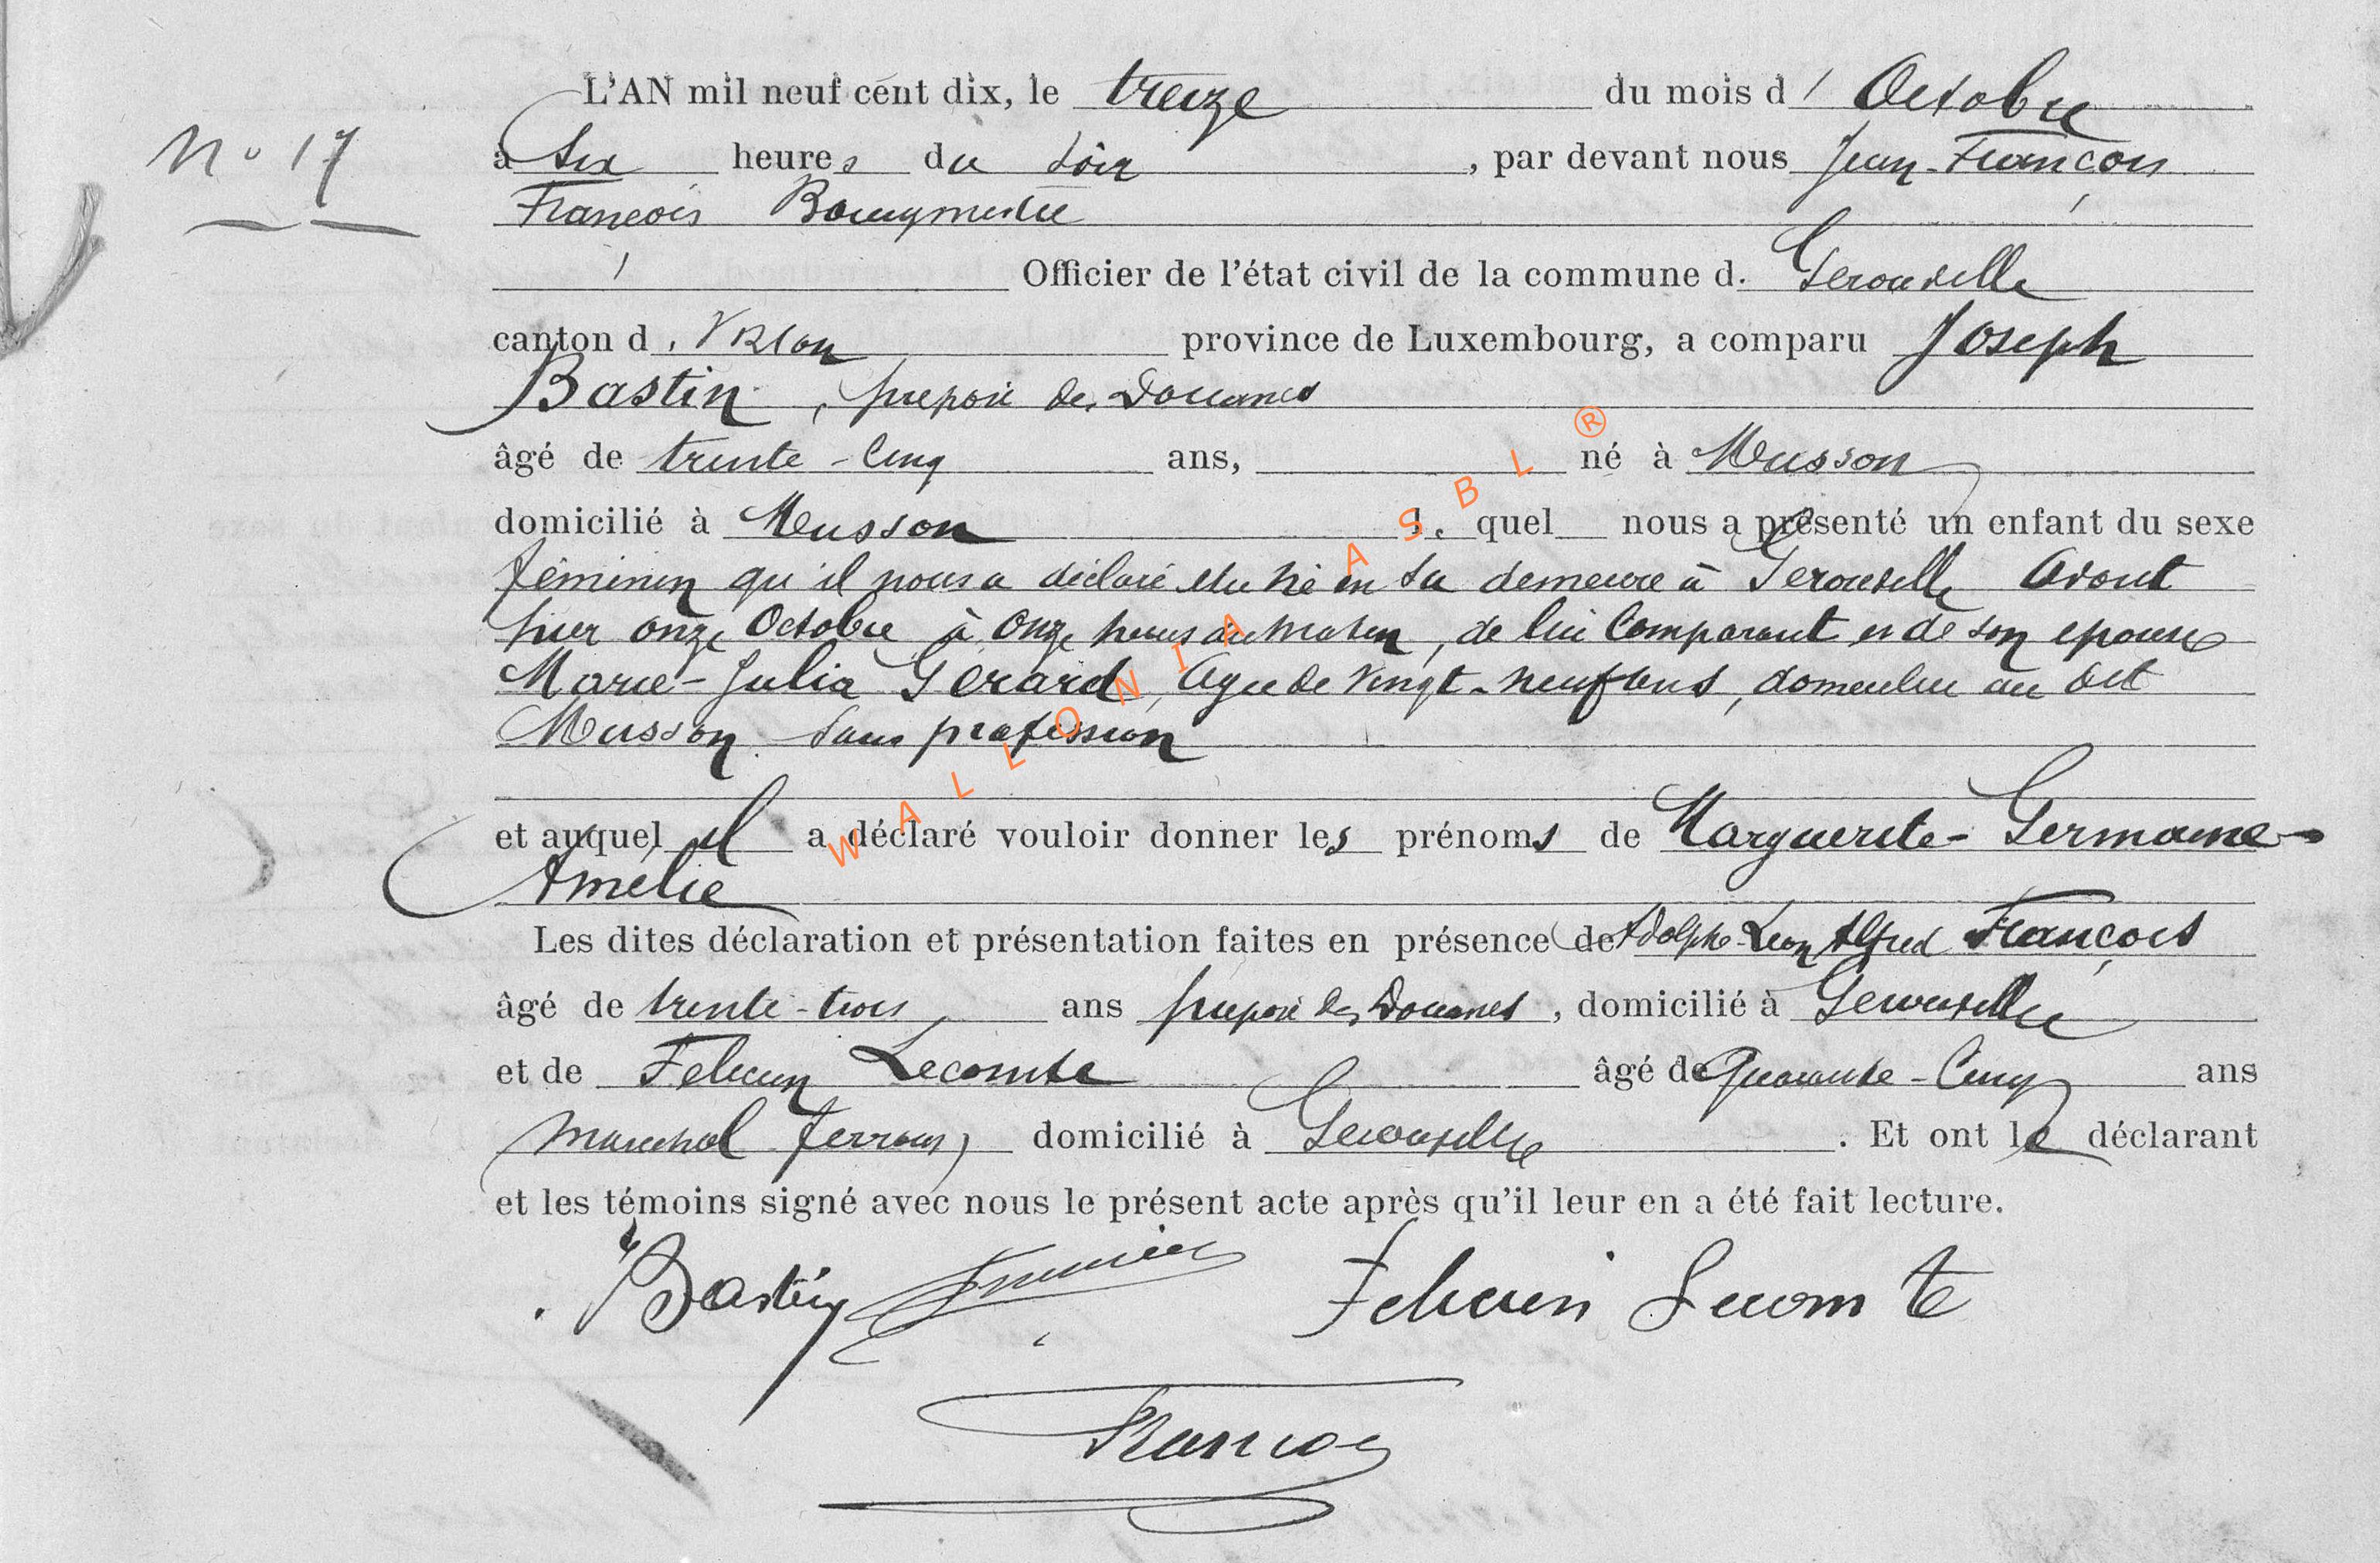 L'AN mil neuf cent dix, le treize du mois d' Octobre
N° 17
à six heures du soir, par devant nous Jean-François
François
Officier de l'état civil de la commune d. Gerouville
canton d. Virton province de Luxembourg, a comparu Joseph
Bastin, préposé des Douanes
âgé de trente-cinq ans, né à Musson
domicilié à Musson le quel nous a présenté un enfant du sexe
féminin qu'il nous a déclaré être né en sa demeure à Gerouville avant
hier onze Octobre à onze heures du matin, de lui Comparant et de son epouse
Marie-Julia Gerard, agée de vingt-neuf ans, domiciliée au dit
Musson sans profession
et auquel il a déclaré vouloir donner les prénoms de Marguerite-Germaine-
Amélie
Les dites déclaration et présentation faites en présence de Adolphe-Leon Alfred François
âgé de trente-trois ans préposé des Douanes, domicilié à Gerouville
et de Felicien Lecomte âgé de Quarante-Cinq ans
marechal ferrant, domicilié à Gerouville. Et ont le déclarant
et les témoins signé avec nous le présent acte après qu'il leur en a été fait lecture.
Bastin Felicien Lecomte
Francois
WALLONIA ASBL ®